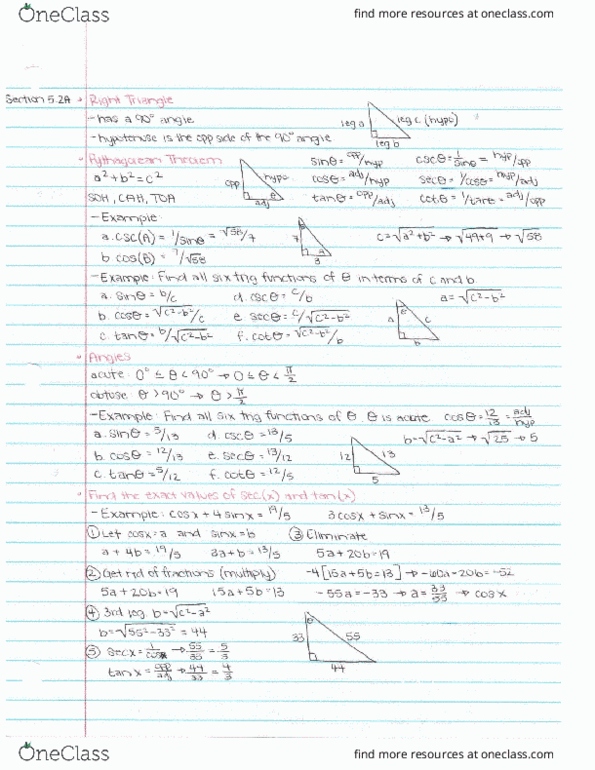 OneClass
find more resources at oneclass.com
Section 5.2A • Right Triangle
- has a 90° angle
- hypotenuse is the opp side of the 90° angle
leg a
leg c (hypo)
leg b
• Pythagorean Theorem
a² + b² = c²
SOH, CAH, TOA
opp
hypo
adj
θ
sinθ = opp/hyp cscθ = 1/sinθ = hyp/opp
cosθ = adj/hyp secθ = 1/cosθ = hyp/adj
tanθ = opp/adj cotθ = 1/tanθ = adj/opp
- Example:
a. csc(A) = 1/sinθ = √58/7
b. cos(B) = 7/√58
7
3
c = √a²+b² → √49+9 → √58
- Example: Find all six trig functions of θ in terms of c and b
a. sinθ = b/c d. cscθ = c/b
b. cosθ = √c²-b²/c e. secθ = c/√c²-b²
c. tanθ = b/√c²-b² f. cotθ = √c²-b²/b
θ
a
c
b
a = √c²-b²
• Angles
acute: 0° ≤ θ < 90° → 0 ≤ θ < π/2
obtuse: θ > 90° → θ > π/2
- Example: Find all six trig functions of θ. θ is acute cosθ = 12/13 = adj/hyp
a. sinθ = 5/13 d. cscθ = 13/5
b. cosθ = 12/13 e. secθ = 13/12
c. tanθ = 5/12 f. cotθ = 12/5
12
13
5
b = √c²-a² → √25 → 5
• Find the exact values of sec(x) and tan(x)
- Example: cosx + 4sinx = 19/5 3cosx + sinx = 13/5
① Let cosx = a and sinx = b
a + 4b = 19/5 3a + b = 13/5
② Get rid of fractions (multiply)
5a + 20b = 19 15a + 5b = 13
③ Eliminate
5a + 20b = 19
-4[15a + 5b = 13] → -60a - 20b = -52
-55a = -33 → a = 33/55 → cosx
④ 3rd leg: b = √c²-a²
b = √55²-33² = 44
⑤ secx = 1/cosx → 55/33 = 5/3
tanx = opp/adj → 44/33 = 4/3
θ
33
55
44
OneClass
find more resources at oneclass.com